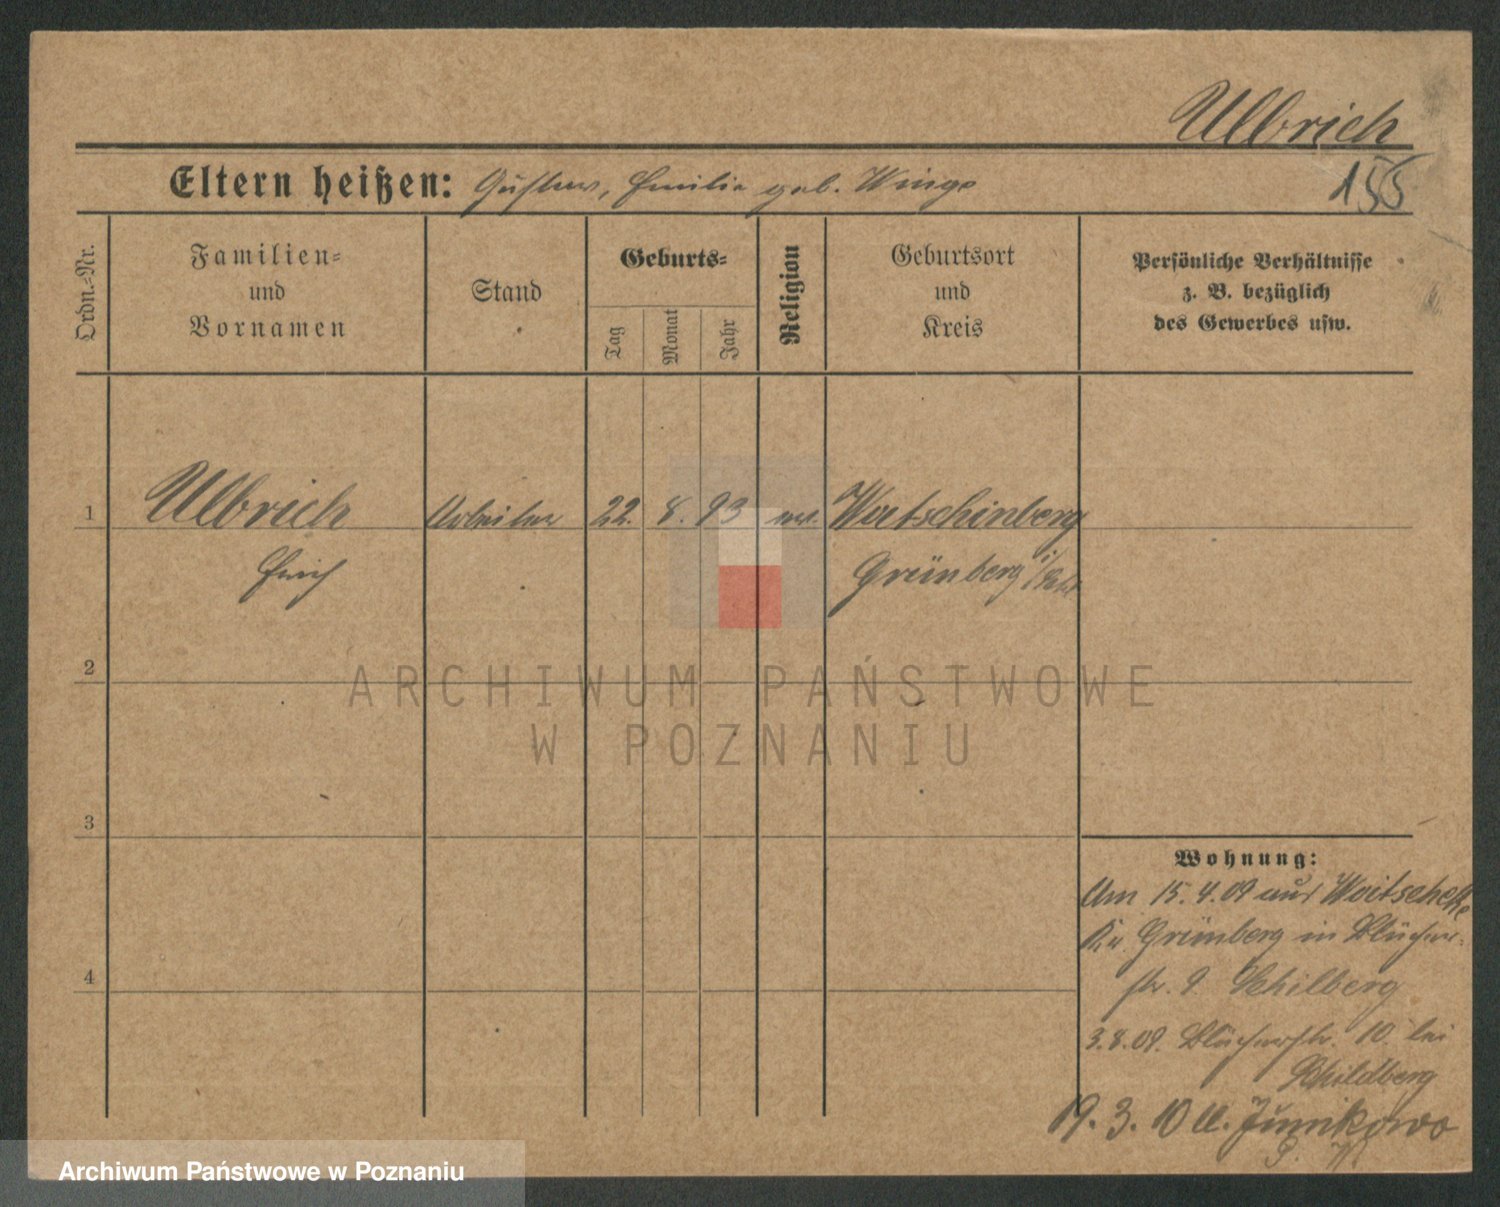 Ulbrich
155
Eltern heißen: Gustav, Emilie geb. Winge
Ordn.-Nr.
Familien-
und
Vornamen
Stand
Geburts-
Tag
Monat
Jahr
Religion
Geburtsort
und
Kreis
Persönliche Verhältnisse
z. B. bezüglich
des Gewerbes usw.
1 Ulbrich Arbeiter 22. 8. 93 ev.
Erich Grünberg i/Schl.
2
3
4
ARCHIWUM PAŃSTWOWE
W POZNANIU
Wohnung:
Am 15.4.09 aus
Kr. Grünberg in Blücher-
str. 9. Schilberg
3.8.09. Blücherstr. 10 bei
Schildberg
19. 3. 10 Junikowo
Archiwum Państwowe w Poznaniu